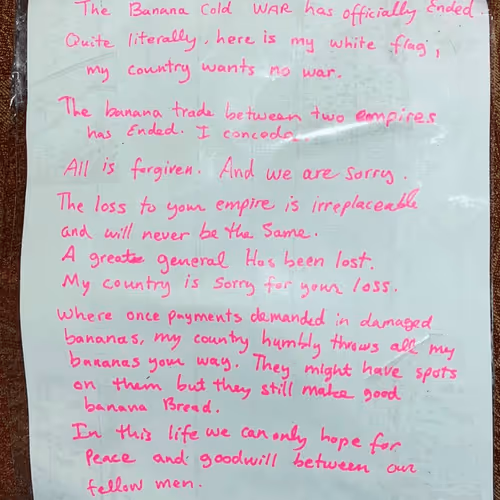 The Banana Cold WAR has officially Ended
Quite literally, here is my white flag,
my country wants no war.
The banana trade between two empires
has Ended. I concede.
All is forgiven. And we are sorry.
The loss to your empire is irreplaceable
and will never be the Same.
A great general Has been lost.
My country is sorry for your loss.
Where once payments demanded in damaged
bananas, my country humbly throws all my
bananas your way. They might have spots
on them but they still make good
banana Bread.
In this life we can only hope for
Peace and goodwill between our
fellow men.